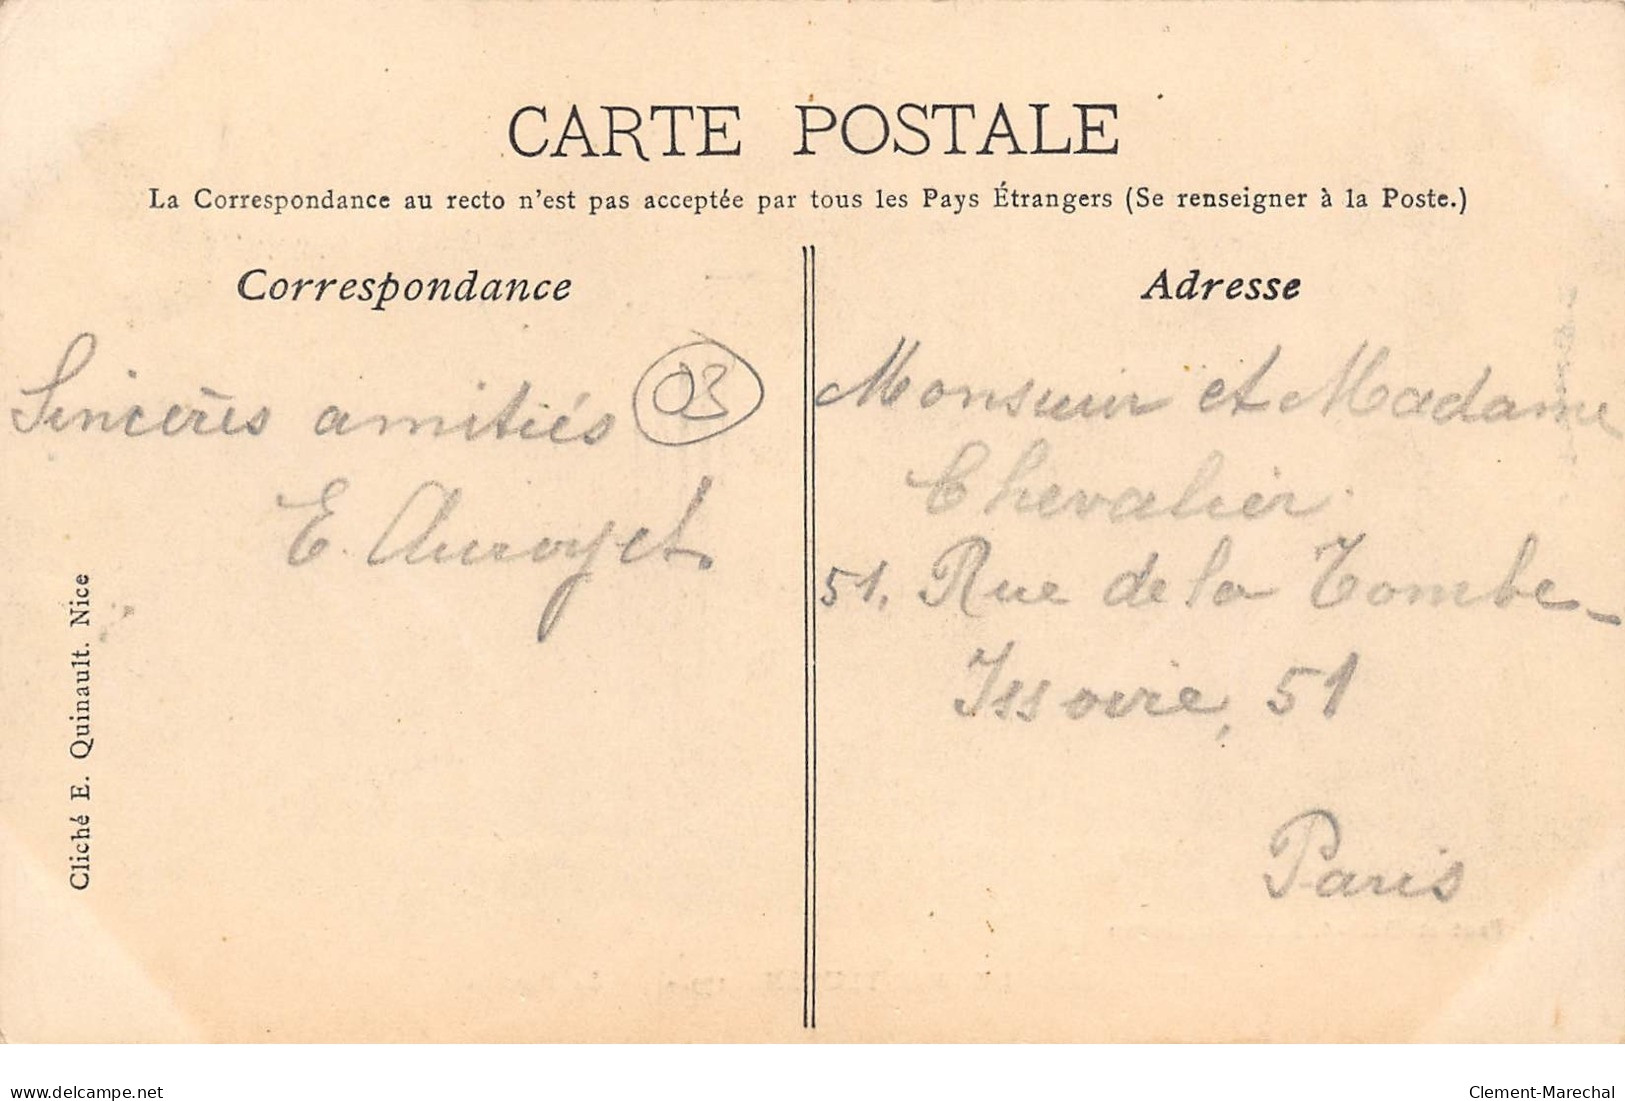 CARTE POSTALE
La Correspondance au recto n'est pas acceptée par tous les Pays Étrangers (Se renseigner à la Poste.)
Correspondance
Sincères amitiés
03
E.
Cliché E. Quinault. Nice
Adresse
Monsieur et Madame
Chevalier
51, Rue de la Tombe-
Issoire, 51
Paris
delcampe.net
Clement-Marechal